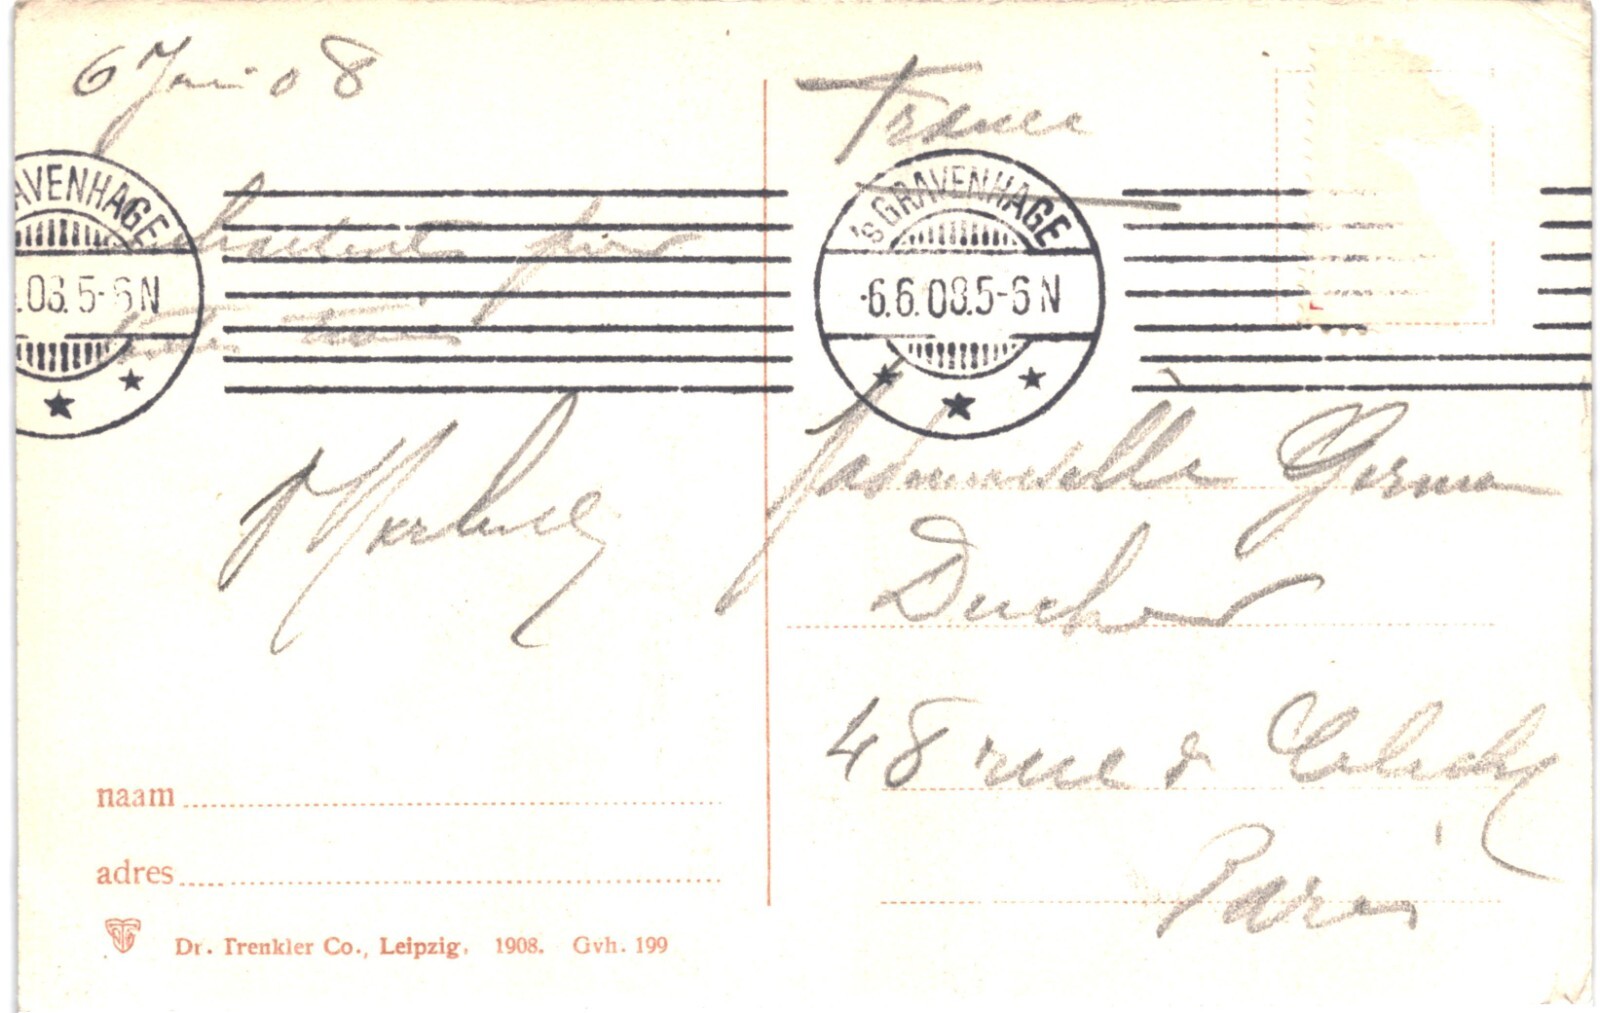 6 Juin 08
AVENHAGE
.08.5-6 N
pour
naam
adres
Dr. Trenkler Co., Leipzig, 1908. Gvh. 199
France
'sGRAVENHAGE
·6.6.08.5-6 N
Mademoiselle
Ducher
48 rue d Clichy
Paris